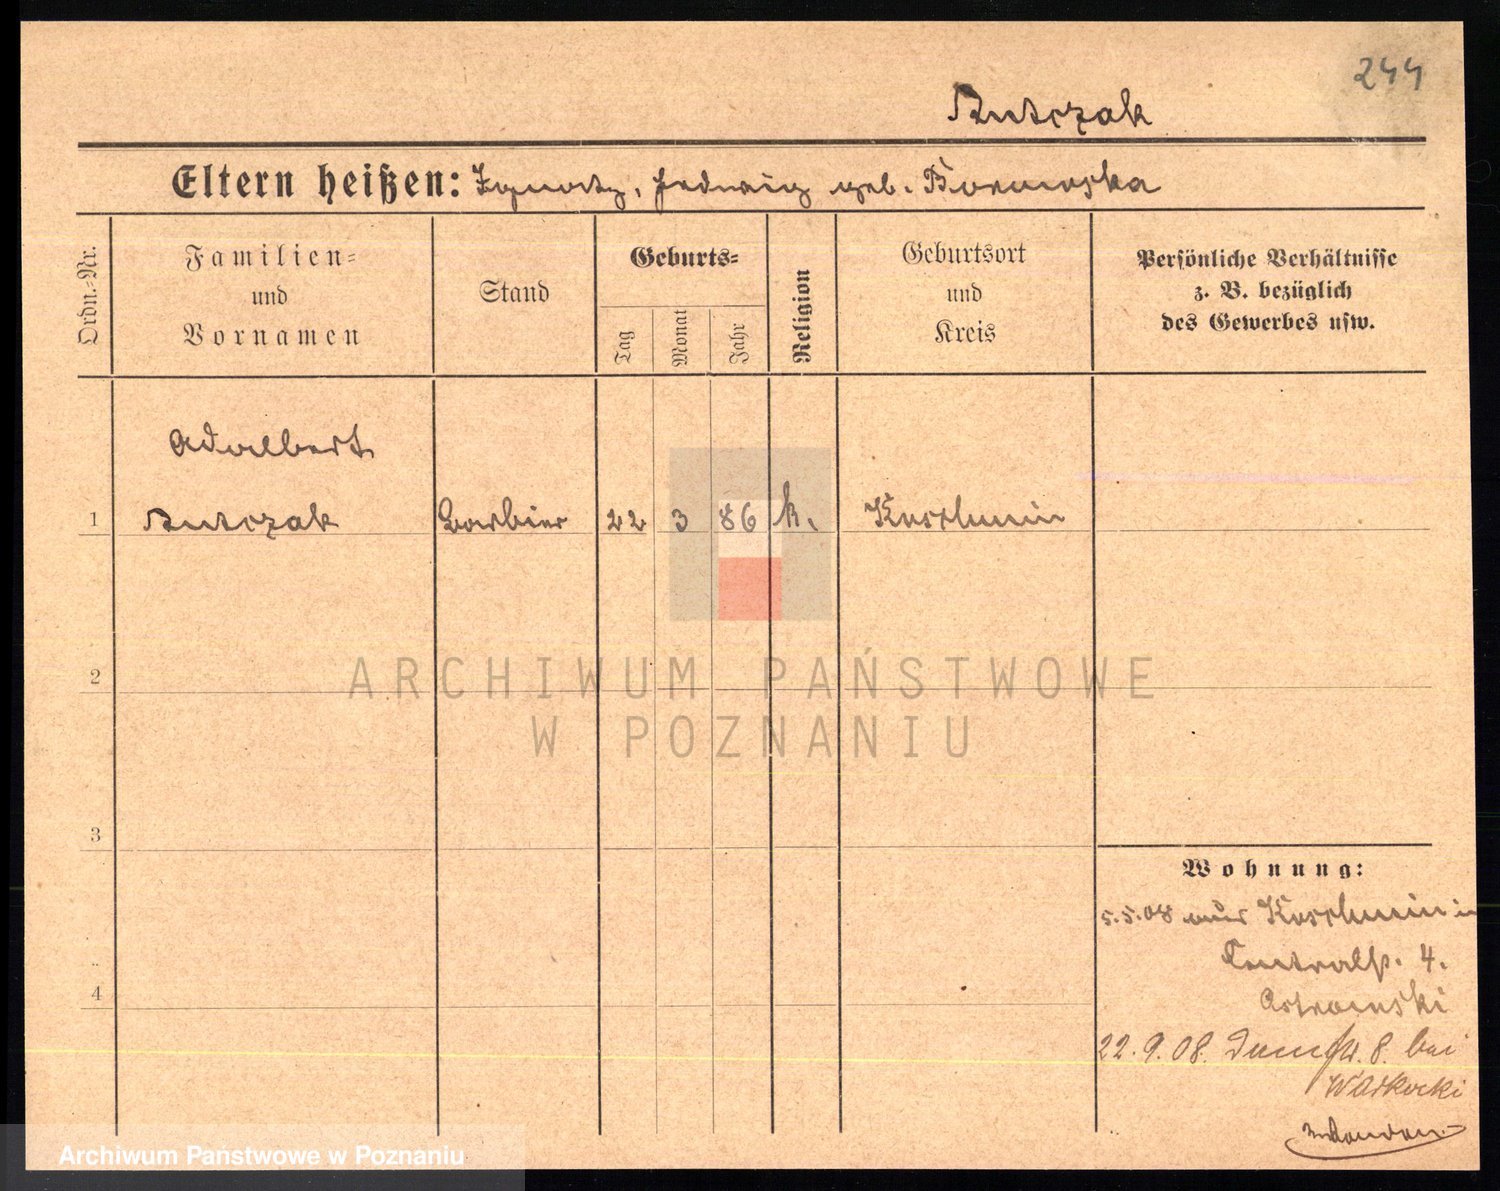 244
Butczak
Eltern heißen: Ignatz, Hedwig geb.
Ordn.-Nr.
Familien-
und
Vornamen
Stand
Geburts-
Tag
Monat
Jahr
Religion
Geburtsort
und
Kreis
Persönliche Verhältnisse
z. B. bezüglich
des Gewerbes usw.
Adalbert
1 Butczak Barbier 22 3 86 k. Koschmin
2
3
4
Wohnung:
5.5.08 aus Koschmin in
4.
22.9.08. 8. bei
ARCHIWUM PAŃSTWOWE
W POZNANIU
Archiwum Państwowe w Poznaniu